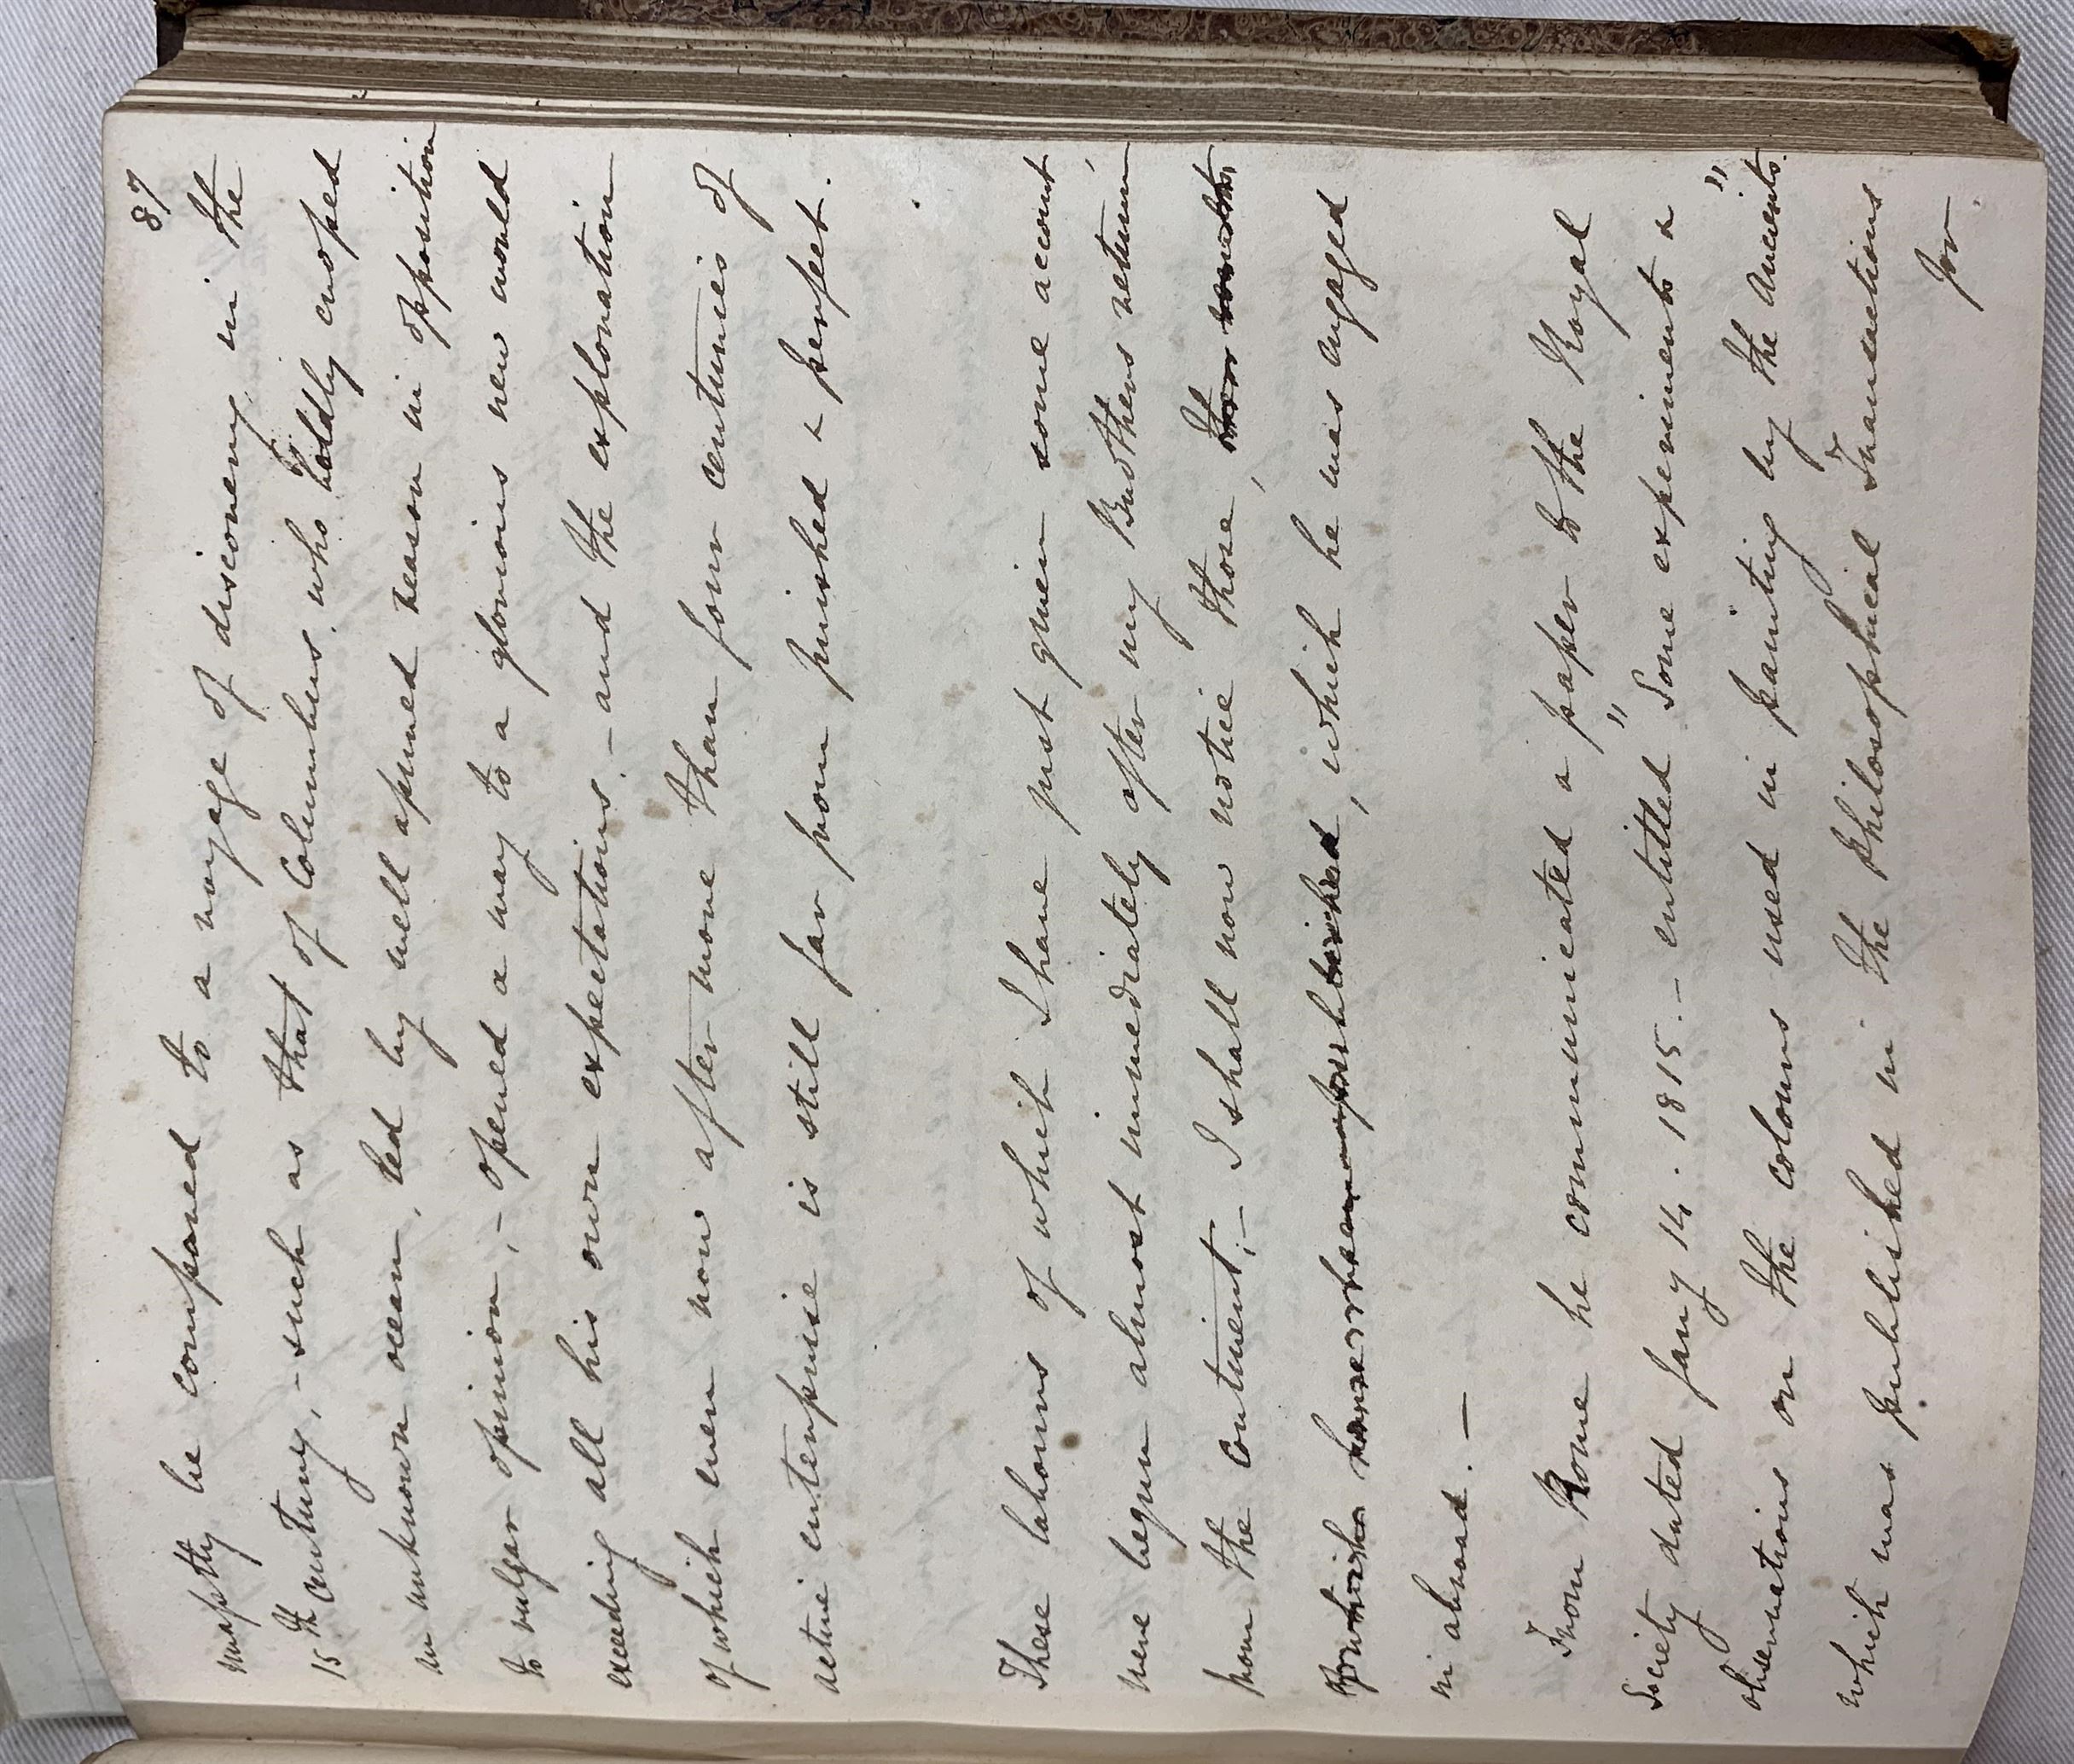 87
unaptly be compared to a voyage of discovery in the
15th Century, - such as that of Columbus, who boldly crossed
an unknown ocean, led by well assured reason in opposition
to vulgar opinion, - opened a way to a glorious new world
exceeding all his own expectations, - and the exploration
of which even now after more than four centuries of
active enterprise is still far from finished & perfect.
These labours of which I have just given some account
were begun almost immediately after my Brothers return,
from the Continent; - I shall now notice those,
which he was engaged
in abroad. —
From Rome he communicated a paper to the Royal
Society dated Jany 14. 1815 - entitled "Some experiments &
observations on the colours used in painting by the Ancients"
which was published in the Philosophical Transactions
for